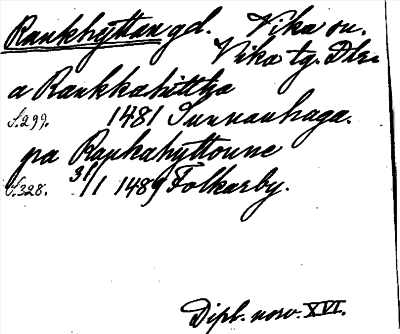 Rankhyttan gd. Vika sn.
Vika tg. Dlr.
a Rankkahittho
s. 299. 1481 Sunnanhaga.
pa Rankahyttonne
s. 328. 31/1 1489 Folkarby.
Dipl. norv. XVI.